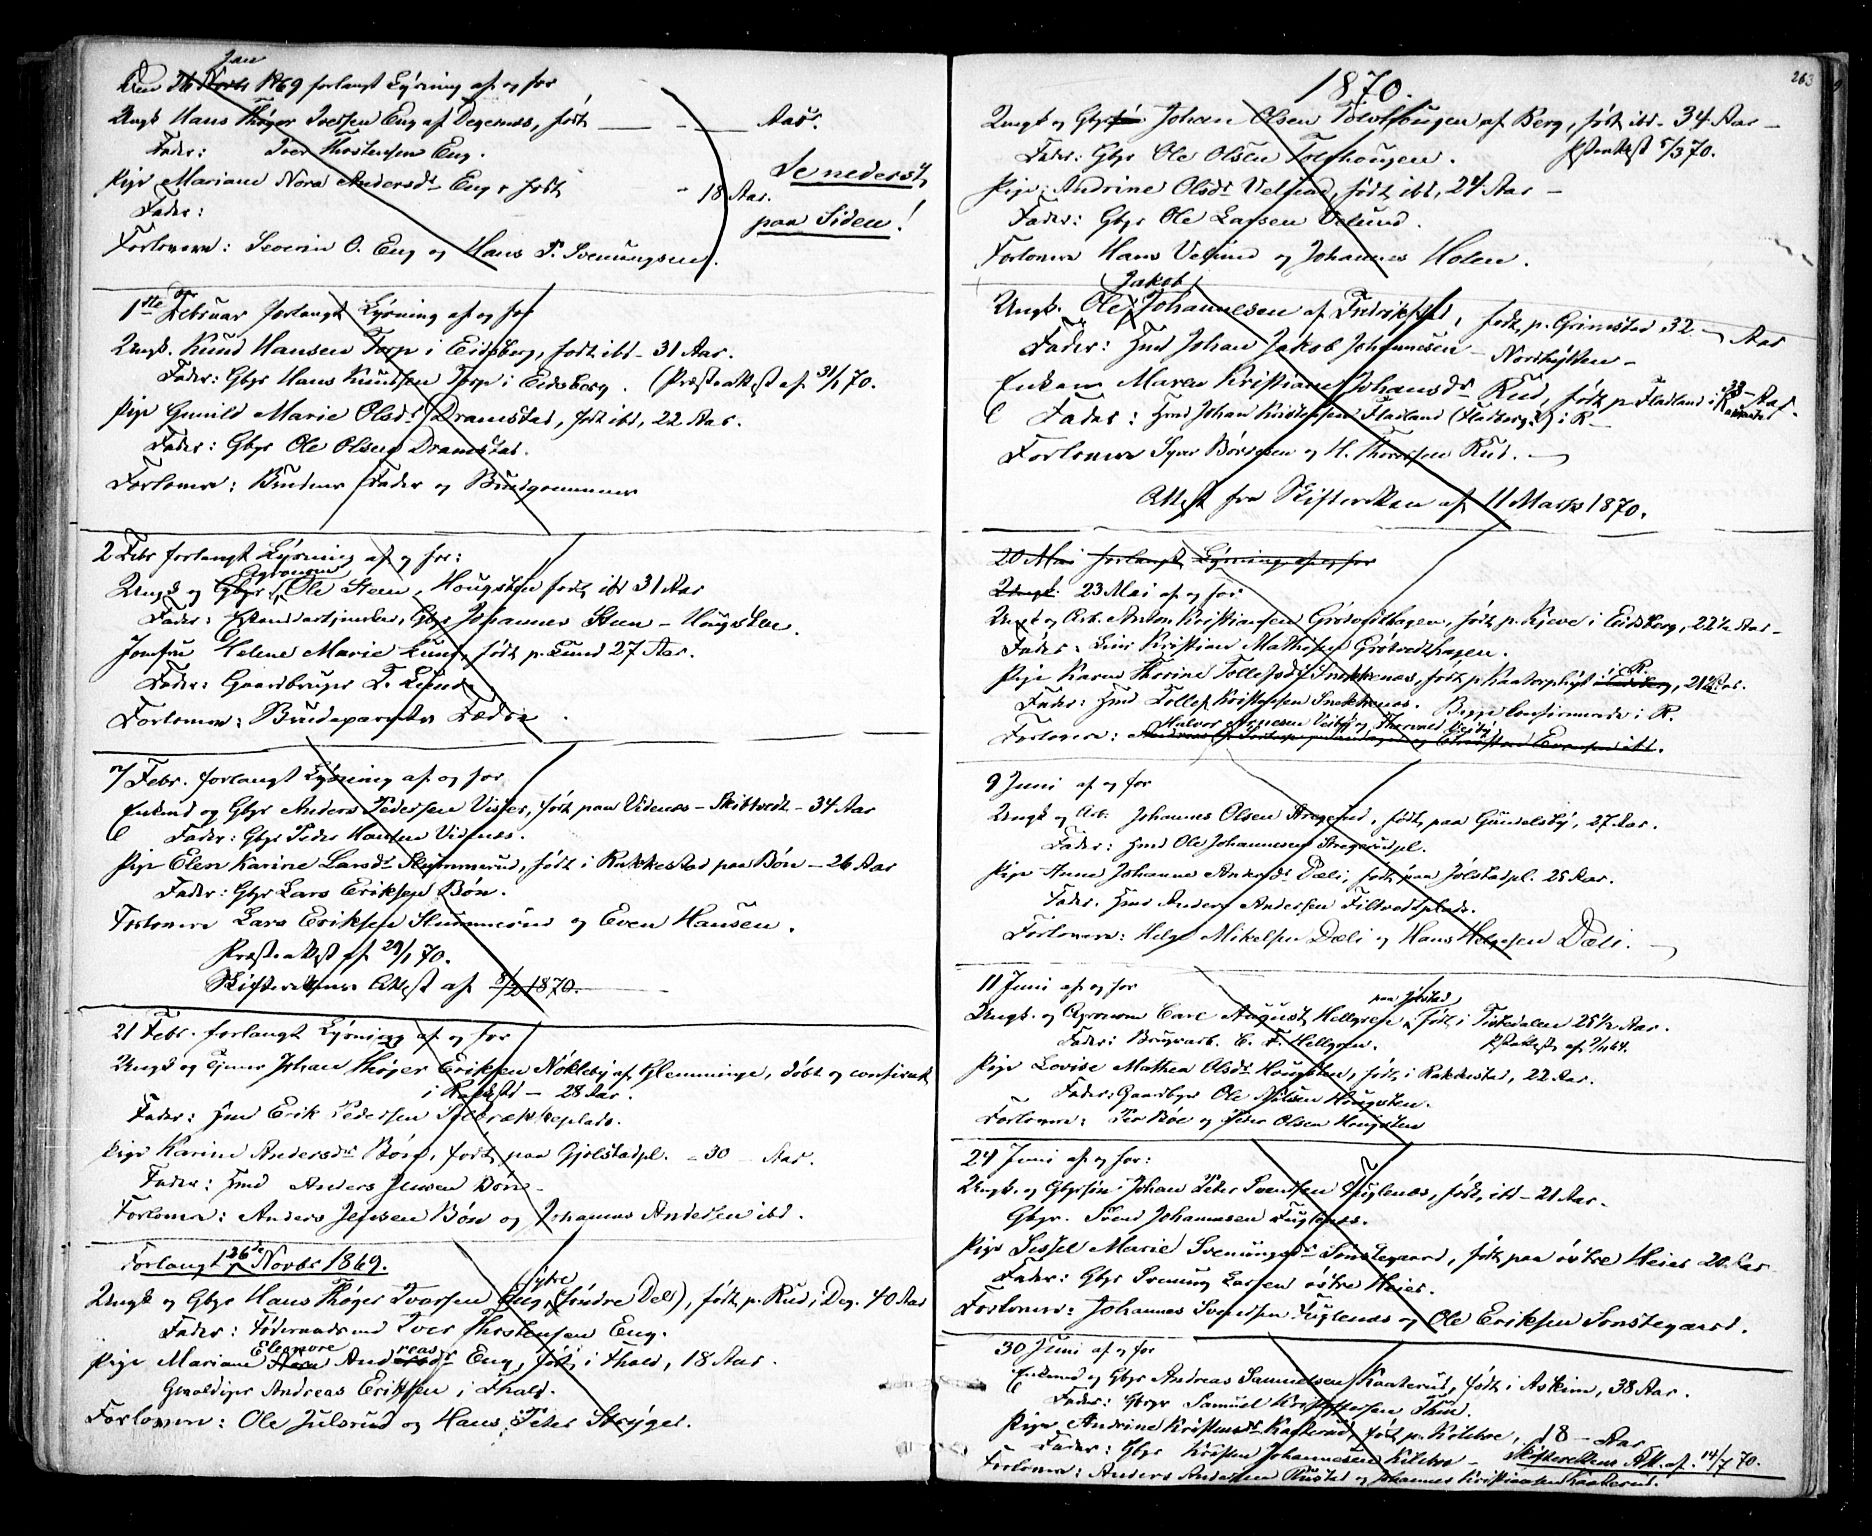 Jan
Den 26 Novbr 1869 forlangt Lysning af og for
Ungk Hans Thøger Iversen Eng af Degernes, født — Aar.
Fader: Iver Thorstensen Eng.
Pige Mariane Nora Andersdr Eng, født 18 Aar.
Fader:
Forlovere: Severin O. Eng og Hans P. Svenungsen.
Se nederst
paa Siden!
1ste Februar forlangt Lysning af og for
Ungk. Knud Hansen Torp i Eidsberg, født ibd - 31 Aar.
Fader: Gbgr Hans Knudsen Torp i Eidsberg. (Præsteattest af 31/1 70.
Pige Gunild Marie Olsdr Dramstad, født ibd, 22 Aar.
Fader: Gbgr Ole Olsen Dramstad.
Forlovere: Brudens Fader og Brudgommen
2 Febr forlangt Lysning af og for:
Agronom
Ungk og Gbgr Ole Steen, Hougsten født ibd 31 Aar
Fader: Gbgr Johannes Steen - Hougsten.
Jomfru Helene Marie Lund, født p. Lund 27 Aar.
Fader: Gaardbruger T. Lund
Forlovere: Brudeparrets Fædre.
7 Febr. forlangt Lysning af og for
Enkmd og Gbgr Anders Pedersen Vister, født paa Vidnæs - Skibtvedt - 34 Aar
Fader: Gbgr Peder Hansen Vidnæs.
Pige Elen Karine Larsdr Skammerud, født i Rakkestad paa Bøn - 26 Aar
Fader: Gbgr Lars Eriksen Bøn.
Forlovere Lars Eriksen Skammerud og Even Hansen.
Præsteattest af 29/1 70.
Skifterettens Attest af 8/2 1870.
21 Febr. forlangt Lysning af og for
Ungk og Tjener Johan Thøger Eriksen Nökleby af Glemminge, døbt og confirmt
i Rakkestd - 28 Aar.
Fader: Hmd Erik Pedersen
Pige Karine Andersdr Bøn, født paa Gjølstadpl. - 30 - Aar.
Fader: Hmd Anders Jensen Bøn
Forlovere: Anders Jensen Bøn og Johannes Andersen ibd.
Forlangt 26de Novbr 1869.
Ungk og Gbgr Hans Thøger Iversen Eng (søndre Del), født p. Rud i Deg. 40 Aar
Fader: Iver Thorstensen Eng.
Eleonore
Pige Mariane Nora Andreasdr Eng, født i Fhald, 18 Aar.
Andreas Eriksen i Fhald.
Forlovere: Ole Julsrud og Hans Peter Strýger.
263
1870.
Ungk og Gbgrsøn Johan Olsen Tolvhougen af Berg, født ibd. 34 Aar -
Fader: Gbgr Ole Olsen Tolvhougen. Pstattest 5/3 70.
Pige: Andrine Olsdr Velund, født ibd, 24 Aar -
Fader: Gbgr Ole Larsen Velund.
Forlovere Hans Velund og Johannes Holen.
Jakob
Ungk. Ole Johannesen af Fredrikshald, født p. Grimstad 32 - Aar
Fader: Hmd Johan Jakob Johannesen - Nordhytten -
Enken Maren Kristiane Johansdr Rud, født p Fladland i 38 - Aar.
Fader: Hmd Johan Kristensen Fladland (Fladberg?) i R -
Forlovere Syver Børresen og H. Thoresen Rud.
Attest fra Skifteretten af 11 Marts 1870.
20 Mai forlangt Lysning af og for
Ungk. 23 Mai af og for
Ungk og Arb. Anton Kristiansen Grötvedthagen, født p. Kjeve i Eidsberg, 22½ Aar -
Fader: Kristian Mathisen Grötvedthagen.
Pige Karen Thorine Tollefsdr Snekkenæs, født p i R. 21½ Aar.
Fader: Hmd Tollef Kristensen Snekkenæs. Begge konfirmerede i R.
Forlovere: Halvor Arnesen Visby og Thorvald Visby
9 Juni af og for
Ungk og Arb. Johannes Olsen Stegerud, født paa Gundelsby, 27 Aar.
Fader: Hmd Ole Johannesen Stegerudpl.
Pige Anne Johanne Andersdr Dæli, født paa Jølstadpl. 25 Aar.
Fader: Hmd Anders Andersen Filtvedtplads.
Forlovere: Helge Mikelsen Dæli og Hans Helgesen Dæli.
11 Juni af og for
paa Jølstad
Ungk. og Agronom Carl August Hellgren, født i Tistedalen 25½ Aar.
Fader: Brugsarb. C. F. Hellgren. Pstattest af 9/11 64.
Pige Lovise Mathea Olsdr Hougsten, født i Rakkestad, 22 Aar.
Fader: Gaardbgr Ole Nilsen Hougsten.
Forlovere: Per Bøe og Peder Olsen Hougsten
24 Juni af og for:
Ungk. og Gbgrsön Johan Peter Svendsen Fuglenæs, født ibd - 21 Aar.
Gbgr. Svend Johannesen Fuglenæs.
Pige Sessel Marie Svenungsdr Sonstegaard, født paa östre Heier 20 Aar
Fader: Gbgr Svenung Larsen östre Heier.
Forlovere: Johannes Svendsen Fuglenæs og Ole Eriksen Sonstegaard.
30 Juni af og for
Enkmd og Gbgr Andreas Samuelsen Kaaterud, født i Askim, 38 Aar.
Fader: Gbgr Samuel Kristoffersen
Pige Andrine Kristensdr Kaaterud, født p. Kilebo, 18 - Aar
Fader: Gbgr Kristen Johannesen Kilebo - Skifterettens Att. af 14/7 70.
Forlovere: Anders Andersen Rustad og Johannes Kristiansen Kaaterud.